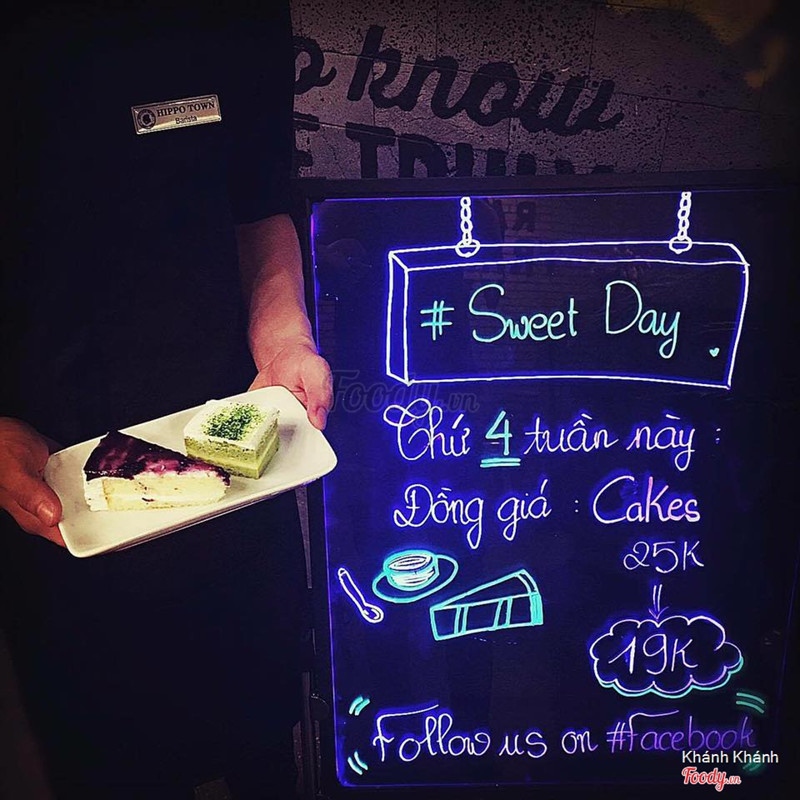 HIPPO TOWN
Barista
o know
# Sweet Day
Thứ 4 tuần này :
Đồng giá : Cakes
25K
19K
Follow us on #Facebook
Foody.vn
Khánh Khánh
Foody.vn